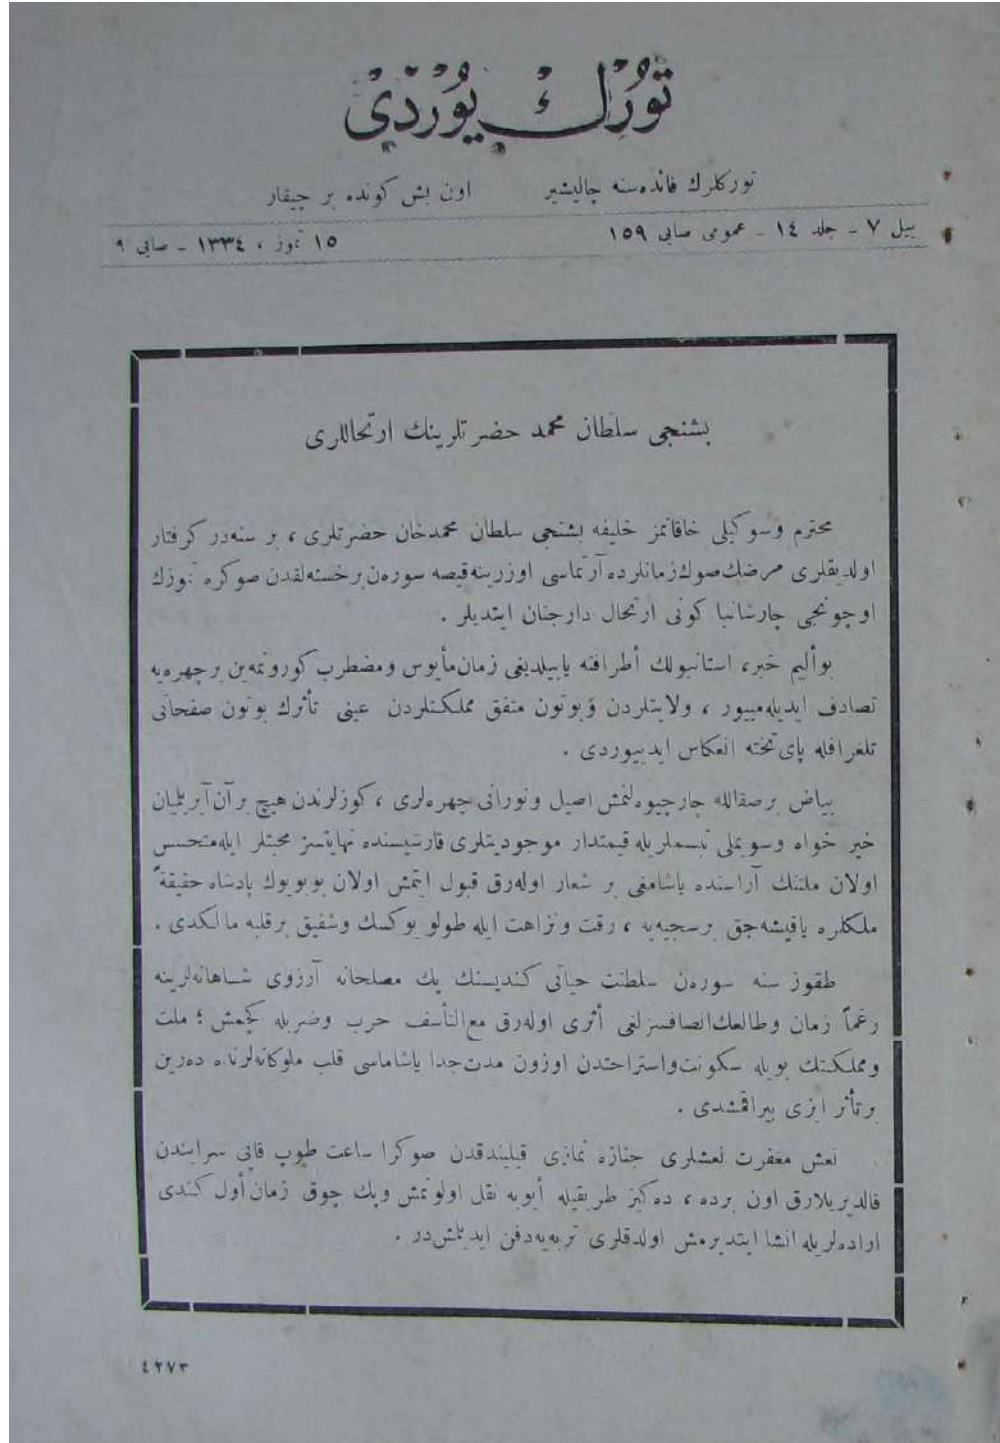 تورك يوردى
توركلرك فائده‌سنه چاليشير اون بش كونده بر چيقار
ييل ٧ - جلد ١٤ - عمومى صايى ١٥٩ ١٥ تموز ، ١٣٣٤ - صايى ٩
بشنجى سلطان محمد حضرتلرينك ارتحاللرى
محترم وسوكيلى خاقانمز خليفه بشنجى سلطان محمدخان حضرتلرى ، بر سنه‌در كرفتار
اولديقلرى مرضك صوك زمانلرده آرتماسى اوزرينه قيصه سوره‌ن بر خسته‌لقدن صوكره تموزك
اوچونجى چارشانبا كونى ارتحال دارجنان ايتديلر .
بو أليم خبر، استانبولك أطرافنه ياييلديغى زمان مأيوس ومضطرب كورونمه‌ين بر چهره‌يه
تصادف ايديله‌مييور ، ولايتلردن وبوتون متفق مملكتلردن عينى تأثرك بوتون صفحاتى
تلغرافله پاى تخته انعكاس ايدييوردى .
بياض بر صقالله چارچيوه‌لنمش اصيل ونورانى چهره‌لرى ، كوزلرندن هيچ بر آن آيريلميان
خير خواه وسويملى تبسملريله قيمتدار موجوديتلرى قارشيسنده نهايتسز محبتلر ايله متحسس
اولان ملتنك آراسنده ياشامغى بر شعار اوله‌رق قبول ايتمش اولان بو بويوك پادشاه حقيقةً
ملكلره ياقيشه‌جق بر سجيه‌يه ، رقت ونزاهت ايله طولو يوكسك وشفيق بر قلبه مالكدى .
طقوز سنه سوره‌ن سلطنت حياتى كنديسنك پك مصلحانه آرزوى شاهانه‌لرينه
رغماً زمان وطالعك انصافسزلغى أثرى اوله‌رق مع التأسف حرب وضربله كچمش ؛ ملت
ومملكتك بويله سكونت واستراحتدن اوزون مدت جدا ياشاماسى قلب ملوكانه‌لرنده ده‌رين
بر تأثر ايزى بيراقمشدى .
نعش مغفرت نعشلرى جنازه نمازى قيليندقدن صوكرا ساعت طوپ قاپى سرايندن
قالديريلارق اون برده ، ده‌كيز طريقيله أيوبه نقل اولونمش وپك چوق زمان أول كندى
اراده‌لريله انشا ايتديرمش اولدقلرى تربه‌يه دفن ايديلمش‌در .
٤٢٧٣